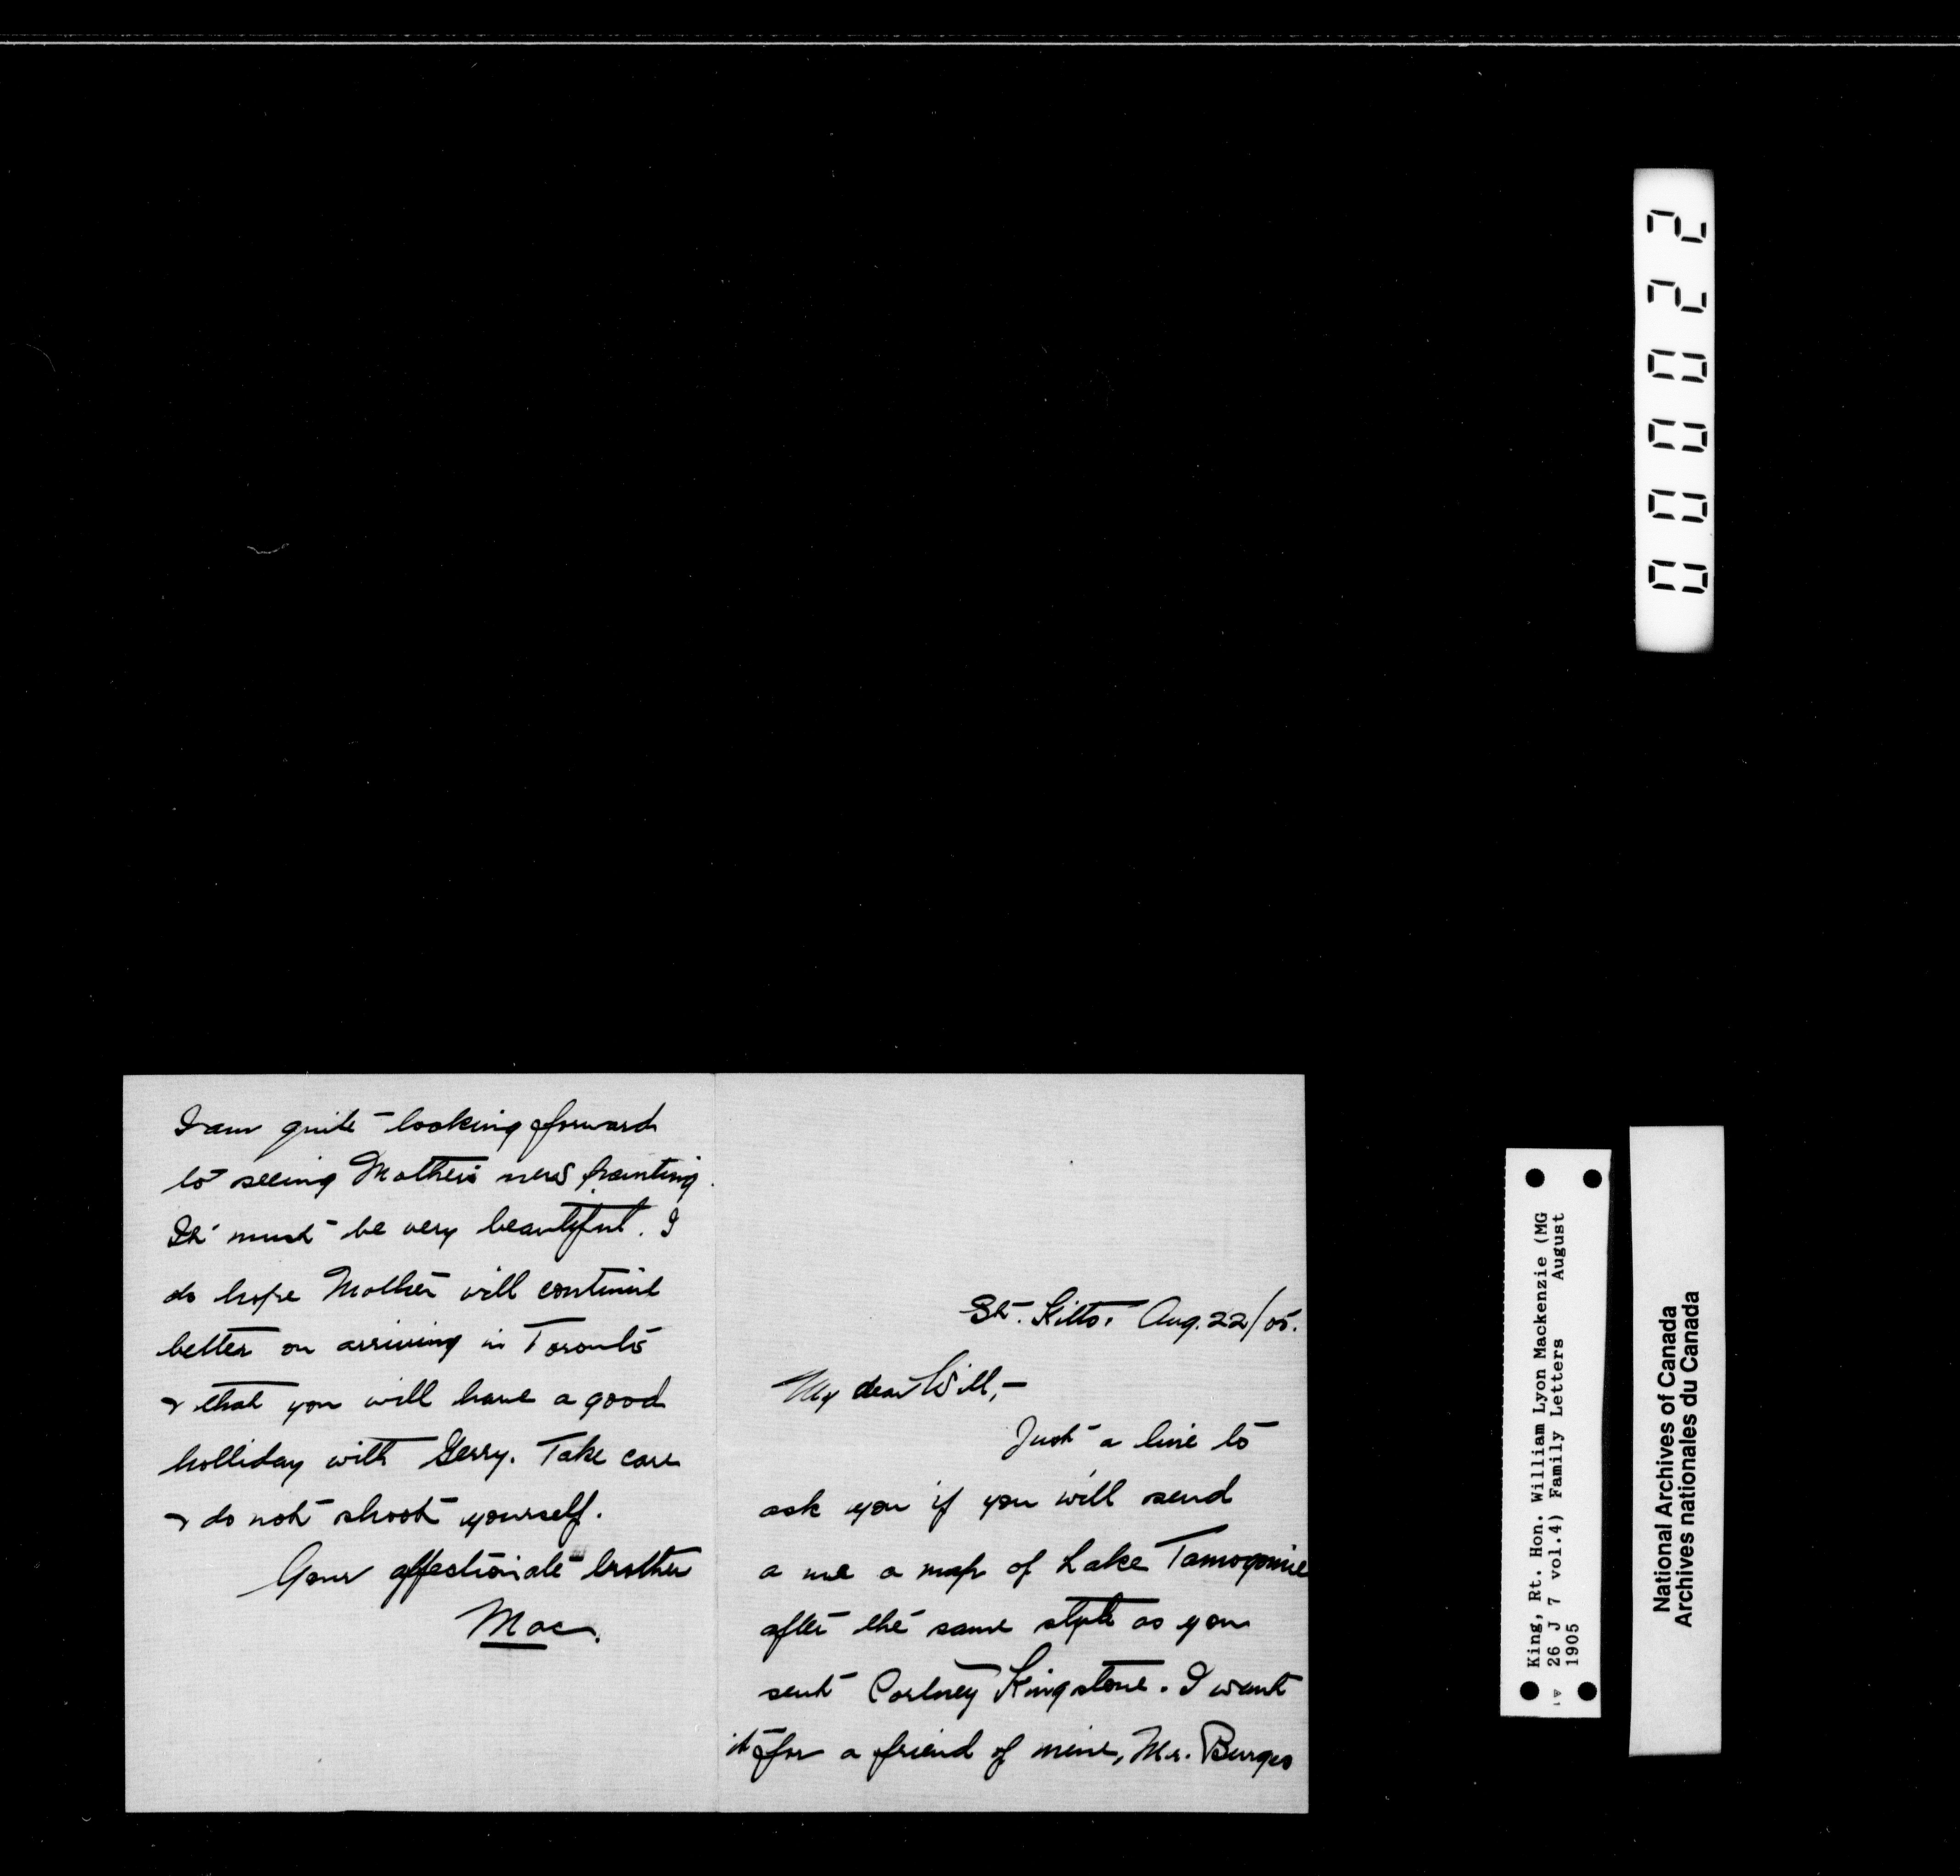 I am quite looking forward
to seeing Mothers new painting.
It must be very beautiful. I
do hope Mother will continue
better on arriving in Toronto
& that you will have a good
holliday with Gerry. Take care
& do not shoot yourself.
Your affectionate brother
Mac.
St. Kitts. Aug. 22/05.
My dear Will,—
Just a line to
ask you if you will send
a me a map of Lake Tamogomie
after the same style as you
sent Cortney Kingstone. I want
it for a friend of mine, Mr. Burges
000022
King, Rt. Hon. William Lyon Mackenzie (MG
26 J 7 vol.4) Family Letters August
1905
National Archives of Canada
Archives nationales du Canada